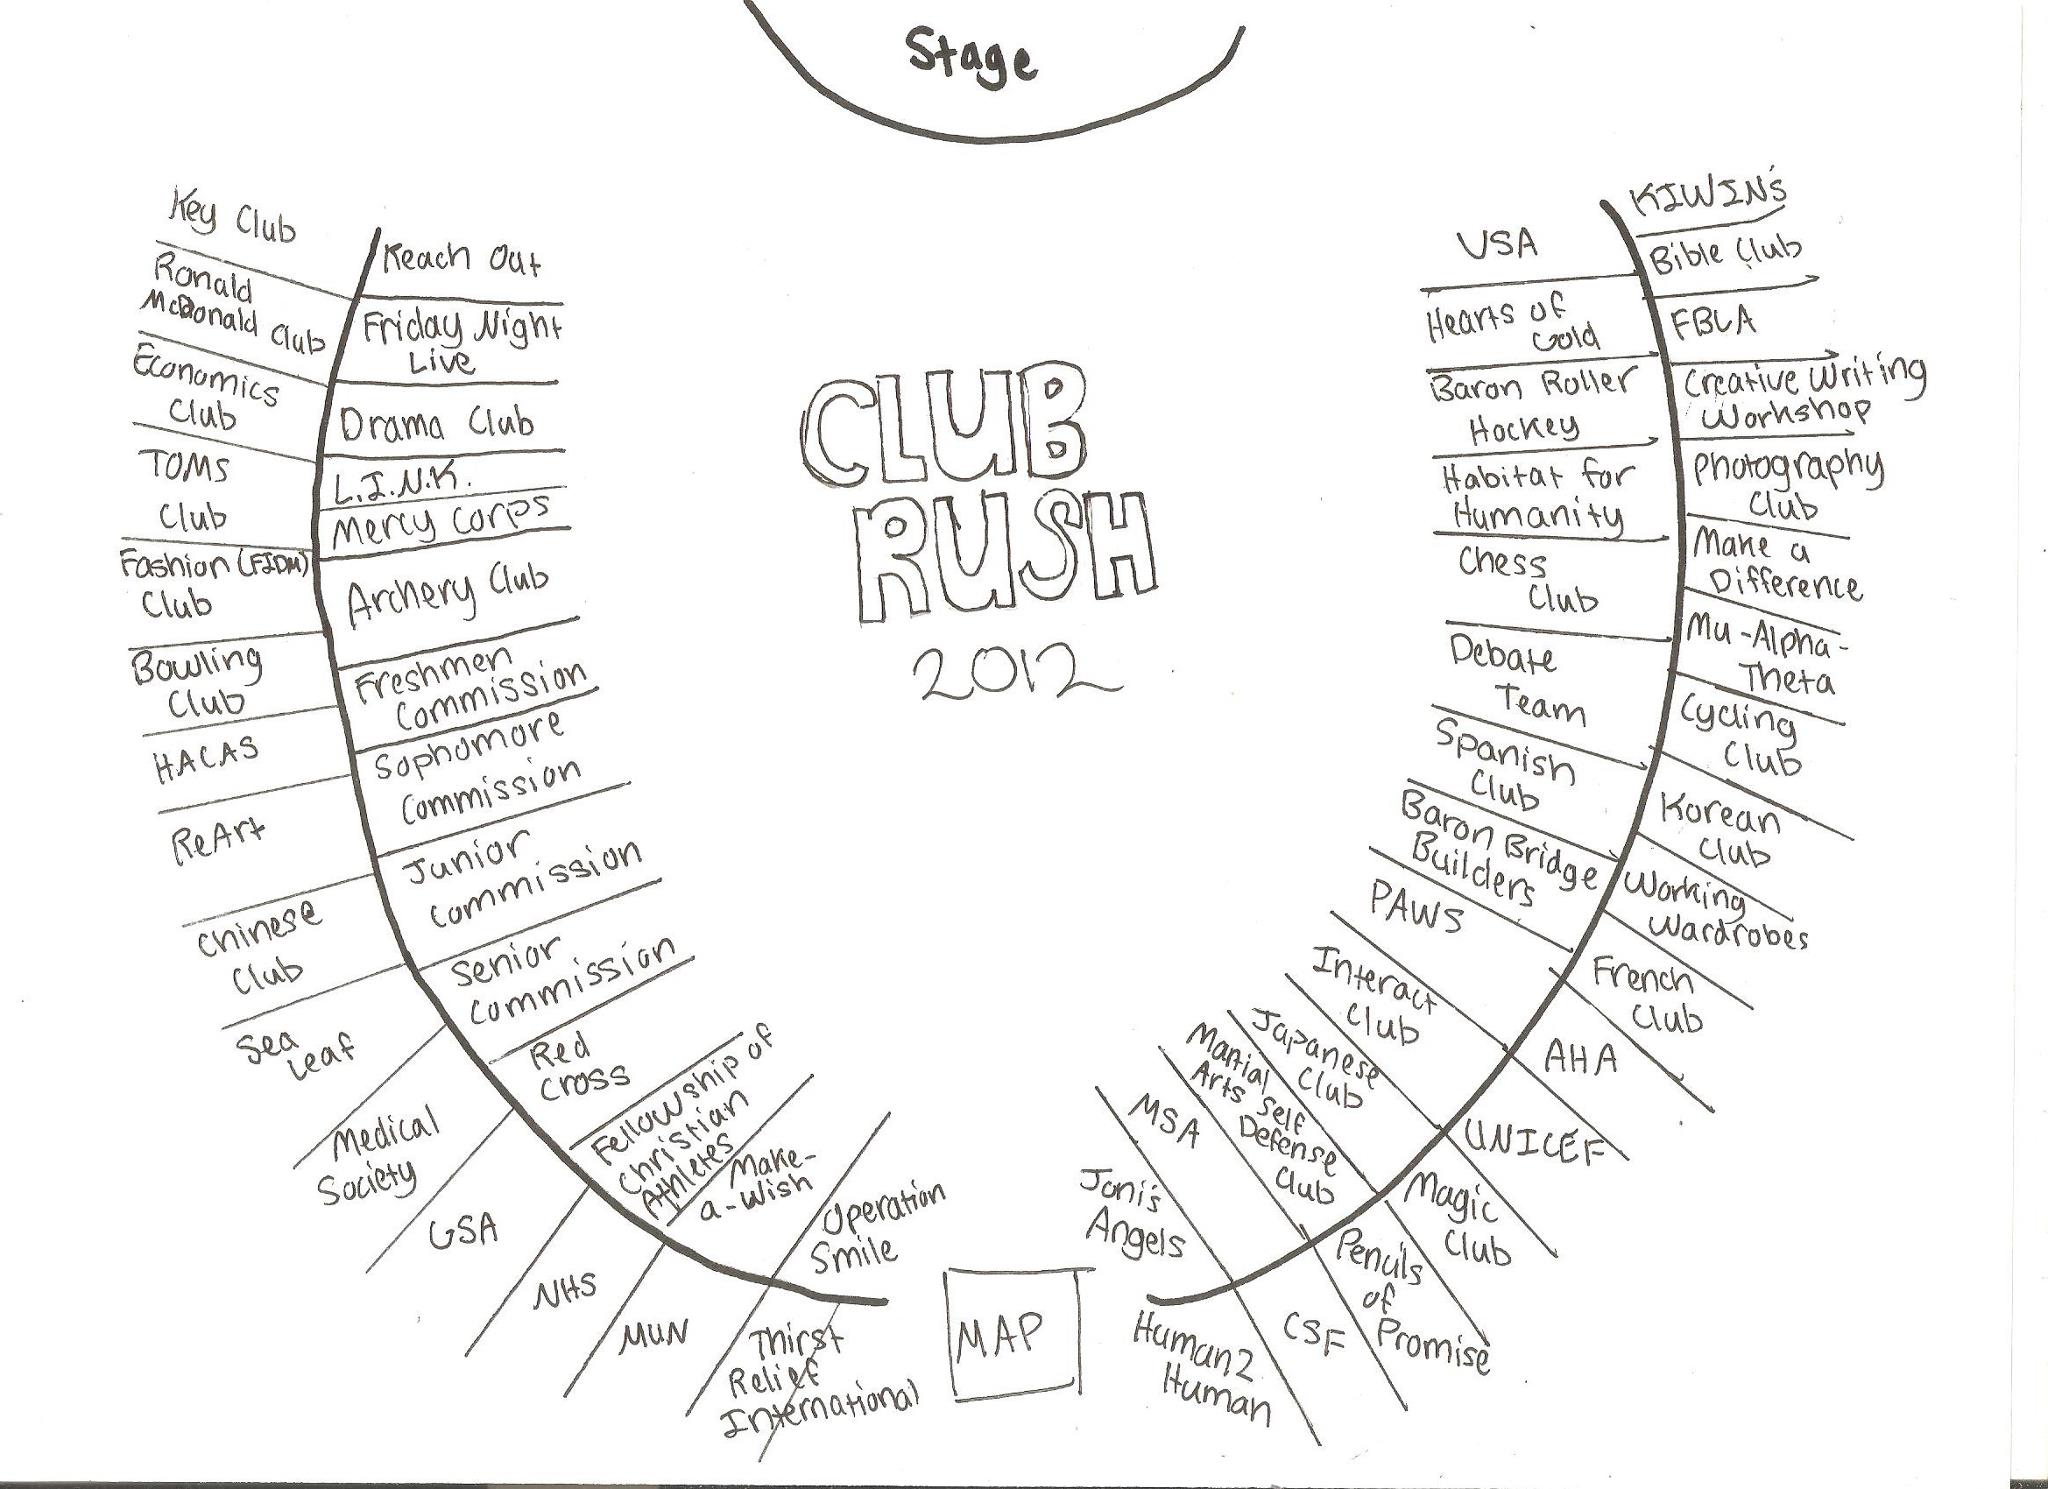 Stage
Key Club
Ronald
McDonald Club
Economics
Club
TOMS
Club
Fashion (FIDM)
Club
Bowling
Club
HACAS
ReArt
Chinese
Club
Sea
Leaf
Medical
Society
GSA
NHS
MUN
Thirst
Relief
International
Reach Out
Friday Night
Live
Drama Club
L.I.N.K.
Mercy Corps
Archery Club
Freshmen
Commission
Sophomore
Commission
Junior
Commission
Senior
Commission
Red
Cross
Fellowship of
Christian
Athletes
Make-
a-Wish
Operation
Smile
CLUB
RUSH
2012
MAP
USA
Hearts of
Gold
Baron Roller
Hockey
Habitat for
Humanity
Chess
Club
Debate
Team
Spanish
Club
Baron Bridge
Builders
PAWS
Interact
Club
Japanese
Club
Martial
Arts Self
Defense
Club
MSA
Joni's
Angels
KIWIN's
Bible Club
FBLA
Creative Writing
Workshop
Photography
Club
Make a
Difference
Mu-Alpha-
Theta
Cycling
Club
Korean
Club
Working
Wardrobes
French
Club
AHA
UNICEF
Magic
Club
Pencils
of
Promise
CSF
Human2
Human